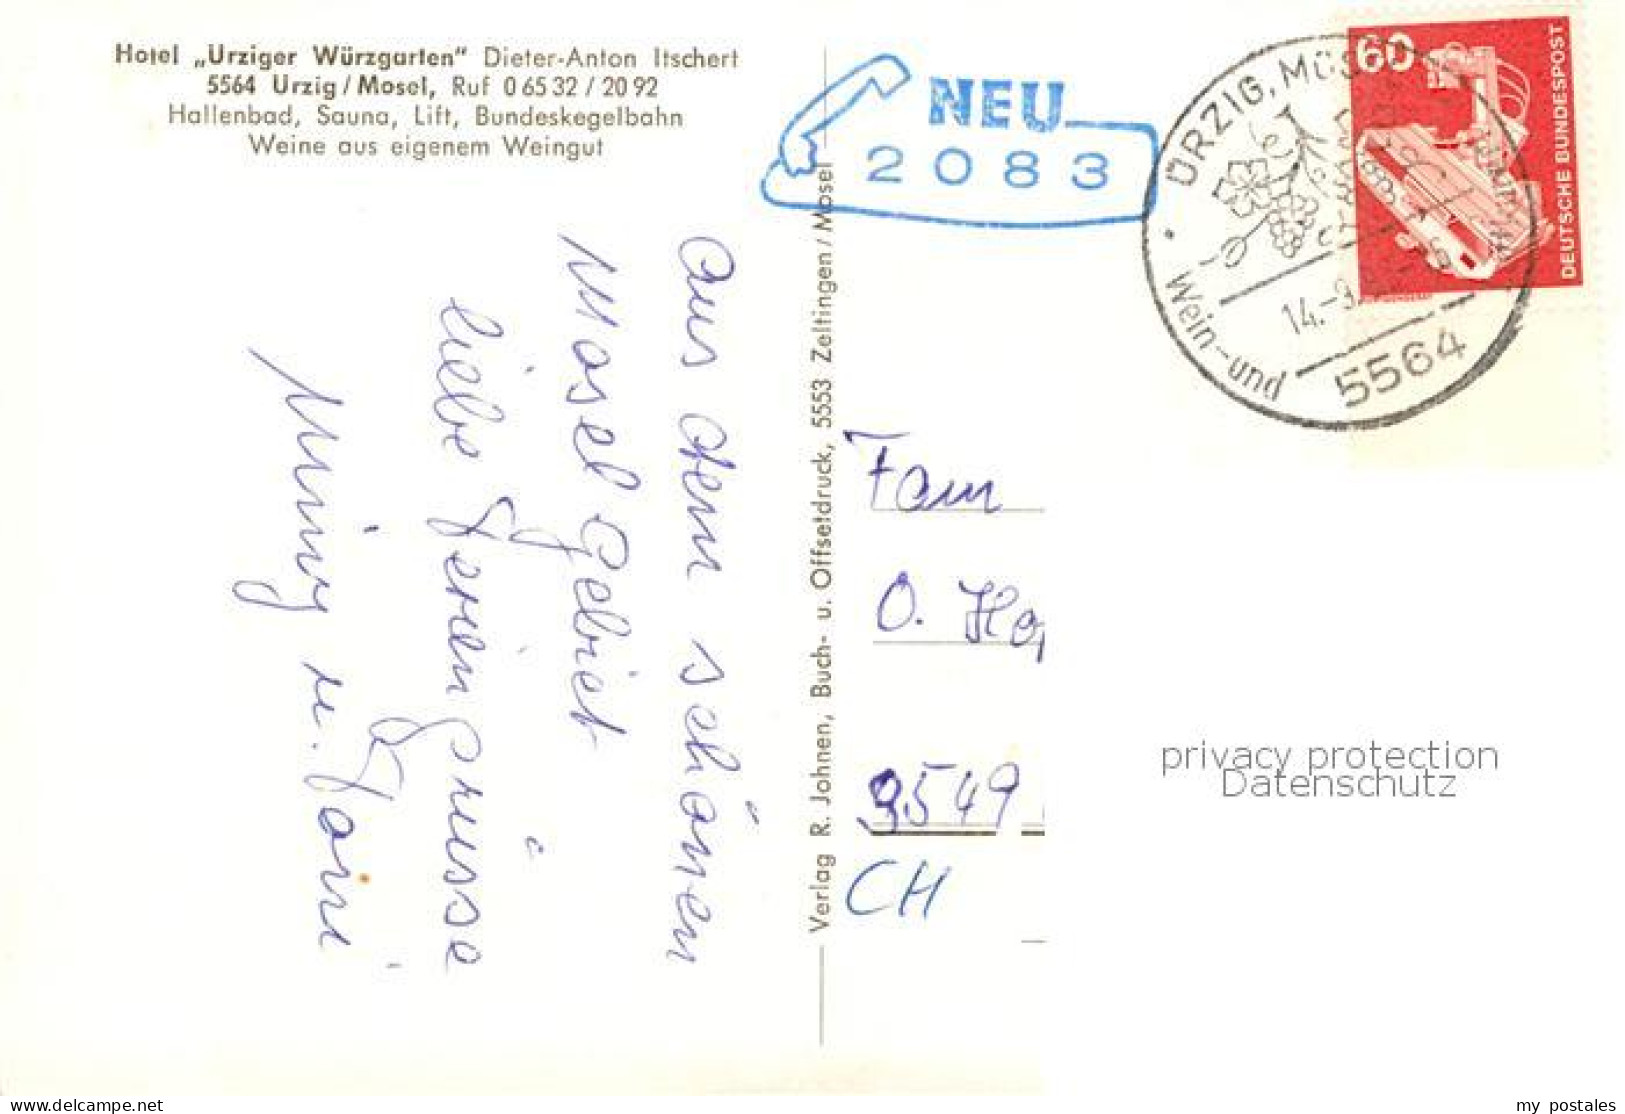 Hotel „Urziger Würzgarten“ Dieter-Anton Itschert
5564 Urzig/Mosel, Ruf 06532/2092
Hallenbad, Sauna, Lift, Bundeskegelbahn
Weine aus eigenem Weingut
NEU
2083
ÜRZIG, MOSEL
Wein- und
14.-9.
5564
60
DEUTSCHE BUNDESPOST
Aus dem schönen
Moselgebiet
liebe Feriengrüsse
Verlag R. Johnen, Buch- u. Offsetdruck, 5553 Zeltingen/Mosel
Fam
O. Ho
9549
CH
privacy protection
Datenschutz
www.delcampe.net
my_postales